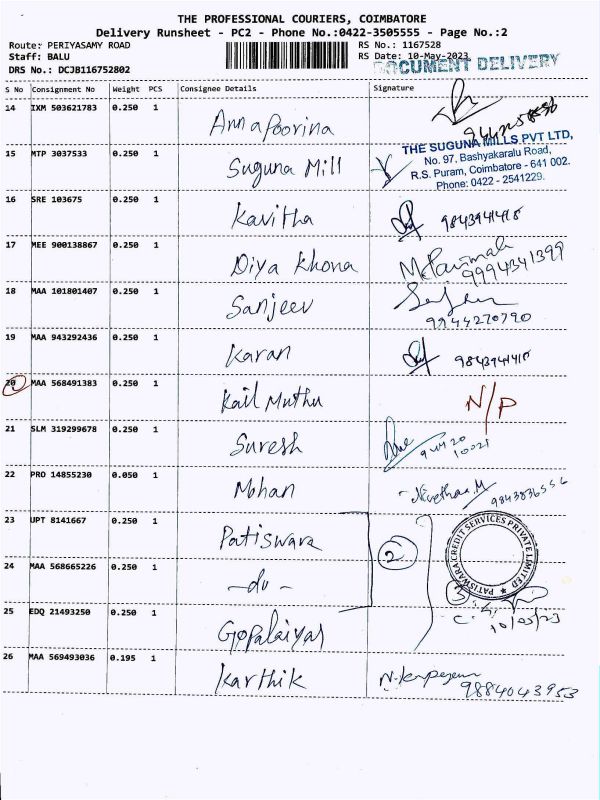 THE PROFESSIONAL COURIERS, COIMBATORE
Delivery Runsheet - PC2 - Phone No.:0422-3505555 - Page No.:2
Route: PERIYASAMY ROAD RS No.: 1167528
Staff: BALU RS Date: 10-May-2023
DRS No.: DCJB116752802 DOCUMENT DELIVERY
S No Consignment No Weight PCS Consignee Details Signature
14 IXM 503621783 0.250 1 Annapoorina
15 MTP 3037533 0.250 1 Suguna Mill
THE SUGUNA MILLS PVT LTD,
No. 97, Bashyakaralu Road,
R.S. Puram, Coimbatore - 641 002.
Phone: 0422 - 2541229.
16 SRE 103675 0.250 1 Kavitha 9843941418
17 MEE 900138867 0.250 1 Diya Khona M. Parimala
9994341399
18 MAA 101801407 0.250 1 Sanjeev
9944270790
19 MAA 943292436 0.250 1 Karan 9843941418
20 MAA 568491383 0.250 1 Kail Muthu N/P
21 SLM 319299678 0.250 1 Suresh
10021
22 PRO 14855230 0.050 1 Mohan 9843836556
23 UPT 8141667 0.250 1 Patiswara
PATISWARA CREDIT SERVICES PRIVATE LIMITED
24 MAA 568665226 0.250 1 -do- 2
3
25 EDQ 21493250 0.250 1 Gopalaiyar 10/05/23
26 MAA 569493036 0.195 1 Karthik
9884043953